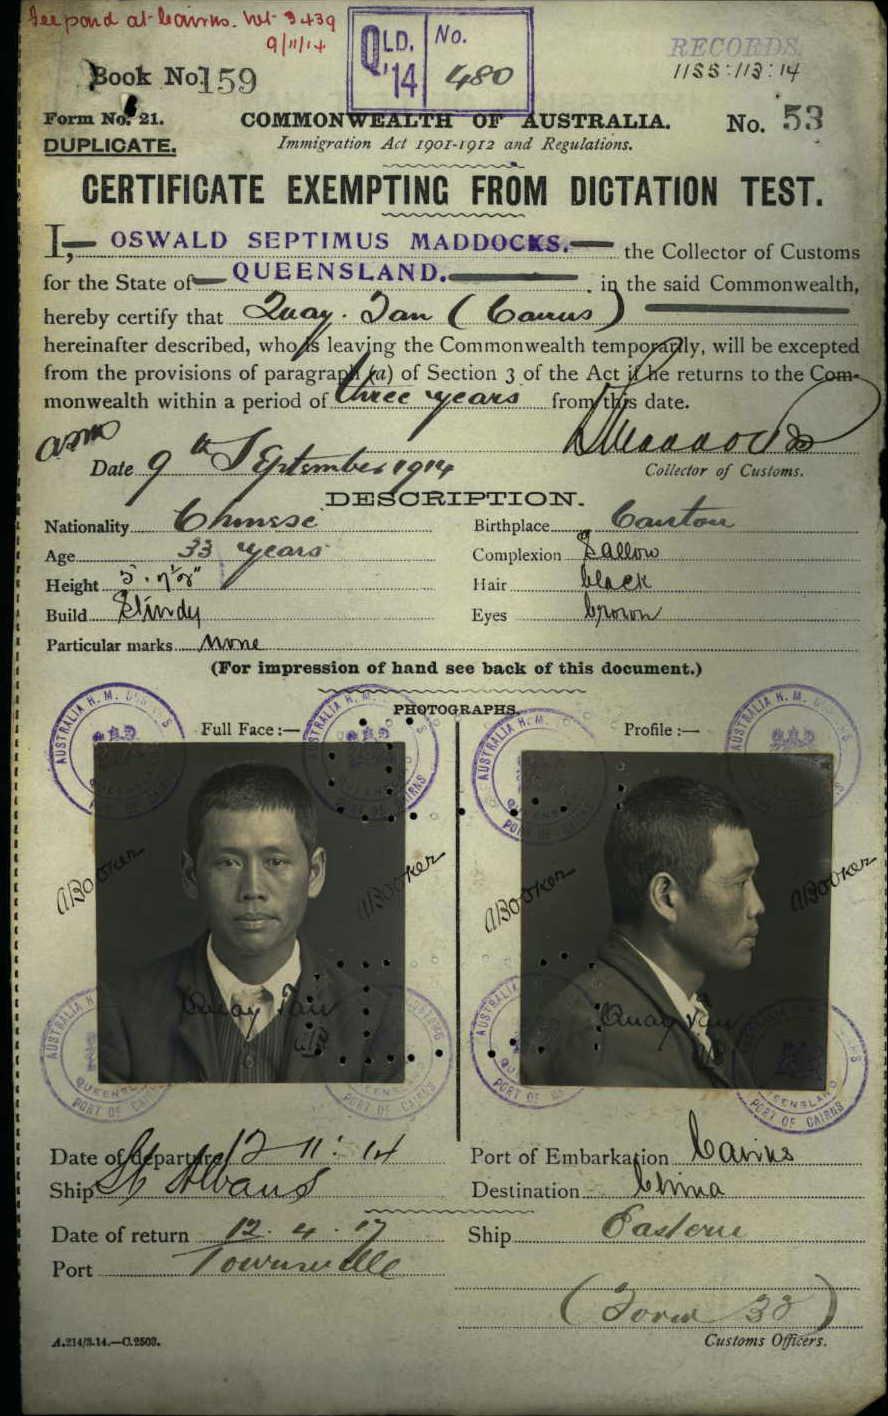 See pond at Cairns. No 3439
9/11/14
QLD. No.
'14 480
RECORDS
Book No. 159
1155:113:14
Form No. 21.
COMMONWEALTH OF AUSTRALIA.
No. 53
DUPLICATE.
Immigration Act 1901-1912 and Regulations.
CERTIFICATE EXEMPTING FROM DICTATION TEST.
I, OSWALD SEPTIMUS MADDOCKS. the Collector of Customs
for the State of QUEENSLAND. in the said Commonwealth,
hereby certify that Quay Tan (Cairns)
hereinafter described, who is leaving the Commonwealth temporarily, will be excepted
from the provisions of paragraph (a) of Section 3 of the Act if he returns to the Com-
monwealth within a period of three years from this date.
Date 9th September 1914
Collector of Customs.
DESCRIPTION.
Nationality Chinese
Birthplace Canton
Age 33 years
Complexion Sallow
Height 5' 7½"
Hair black
Build Sturdy
Eyes brown
Particular marks None
(For impression of hand see back of this document.)
PHOTOGRAPHS.
Full Face :—
Profile :—
ABooker
ABooker
ABooker
ABooker
Quay Tan
Quay Tan
Date of departure 12 11 14
Port of Embarkation Cairns
Ship St Albans
Destination China
Date of return 12. 4. 17
Ship Eastern
Port Townsville
(Form 32)
A.214/3.14.—C.2503.
Customs Officers.